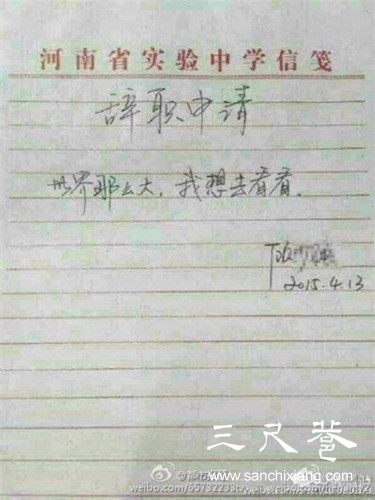 河南省实验中学信笺
辞职申请
世界那么大，我想去看看。
2015.4.13
三尺巷
www.sanchixiang.com